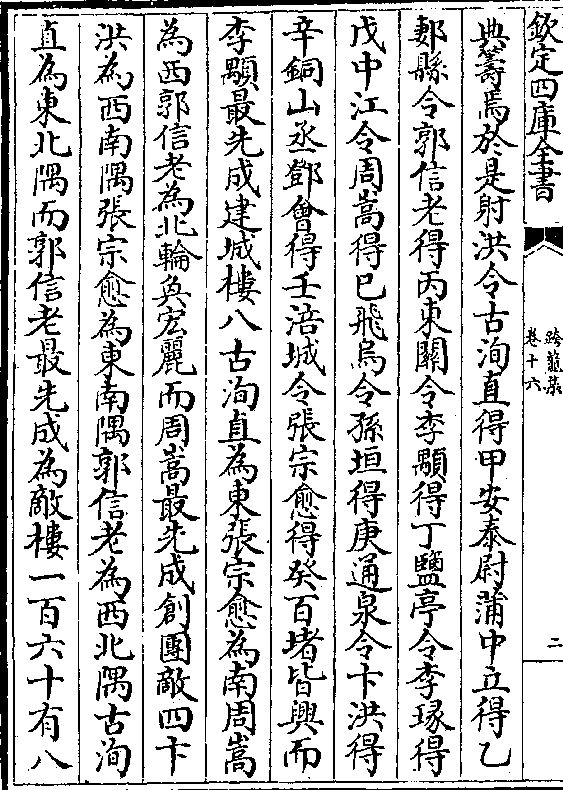 欽定四庫全書
跨鼇集
卷十六
二
典籌焉於是射洪令古洵直得甲安泰尉蒲中立得乙
郪縣令郭信老得丙東關令李顒得丁鹽亭令李瑑得
戊中江令周嵩得已飛烏令孫垣得庚通泉令卞洪得
辛銅山丞鄧會得壬涪城令張宗愈得癸百堵皆興而
李顒最先成建城樓八古洵直為東張宗愈為南周嵩
為西郭信老為北輪奐宏麗而周嵩最先成創團敵四卞
洪為西南隅張宗愈為東南隅郭信老為西北隅古洵
直為東北隅而郭信老最先成為敵樓一百六十有八